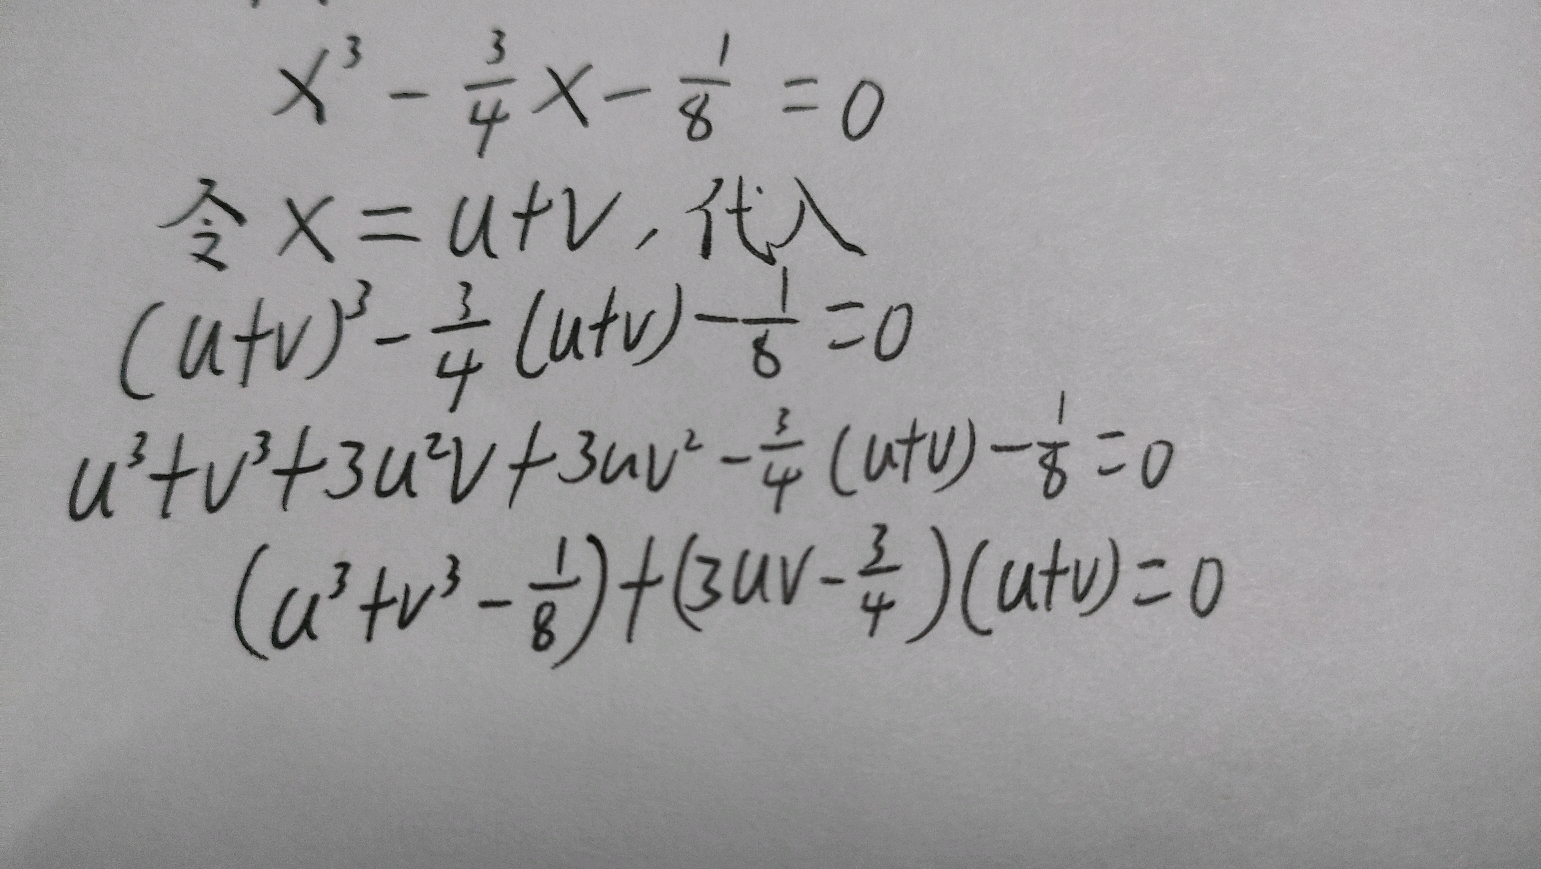 x³ - 3/4 x - 1/8 = 0
令 x = u+v, 代入
(u+v)³ - 3/4 (u+v) - 1/8 = 0
u³+v³+3u²v+3uv² - 3/4 (u+v) - 1/8 = 0
(u³+v³ - 1/8) + (3uv - 3/4)(u+v) = 0